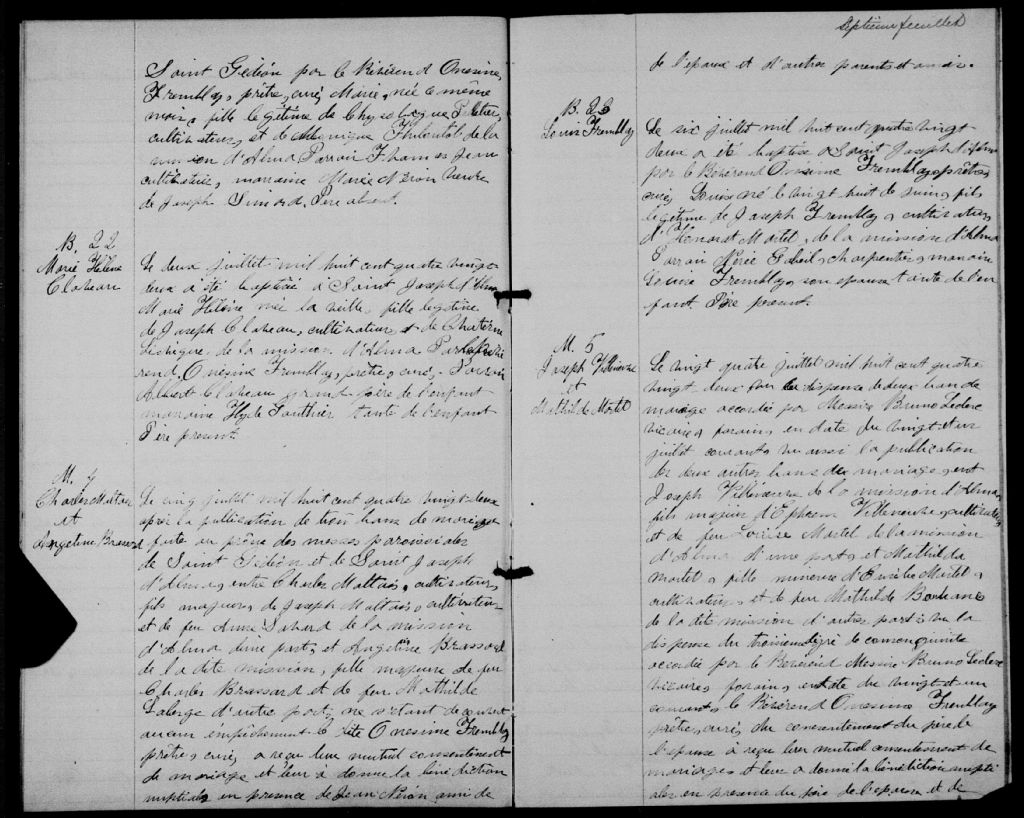 Saint Gédéon par le Révérend Onesime
Tremblay, prêtre, curé, Marie, née le même
mois, fille légitime de
cultivateur, et de de la
mission d'Alma Parrain Thomas Jean
cultivateur, marraine Marie Néron veuve
de Joseph Simard. Père absent.
B. 22
Marie Helene
Claveau
Le deux juillet mil huit cent quatre vingt
deux a été baptisée à Saint Joseph d'Alma
Marie Hélène née la veille, fille legitime
de Joseph Claveau, cultivateur, et de
de la mission d'Alma Par le Révé
rend Onesime Tremblay, prêtre, curé, Parrain
Albert Claveau grand-père de l'enfant
marraine Gauthier tante de l'enfant
Père present.
M. 4
Charles Maltais
et
Angeline Brassard
Le cinq juillet mil huit cent quatre vingt-deux
après la publication de trois bans de mariage
faite au prône des messes paroissiales
de Saint Gédéon et de Saint Joseph
d'Alma, entre Charles Maltais, cultivateur,
fils majeur, de Joseph Maltais, cultivateur
et de feu Anne Savard de la mission
d'Alma d'une part, et Angeline Brassard
de la dite mission, fille majeure de feu
Charles Brassard et de feu Mathilde
Laberge d'autre part, ne s'étant decouvert
aucun empêchement le Onesime Tremblay
prêtre, curé, a reçu leur mutuel consentement
de mariage et leur a donné la bénédiction
nuptiale en presence de Jean Néron ami de
Septième feuillet
de l'epoux et d'autres parents et amis.
B. 23
Louis Tremblay
Le six juillet mil huit cent quatre vingt
deux a été baptisé à Saint Joseph d'Alma
par le Révérend Onesime Tremblay, prêtre,
curé, Louis né le vingt huit de juin, fils
légitime de Joseph Tremblay, cultivateur,
et d'Honorat Martel, de la mission d'Alma
Parrain Nérée charpentier, marraine
Louise Tremblay son epouse tante de l'en
fant. Père present.
M. 5
Joseph Villeneuve
et
Mathilde Martel
Le vingt quatre juillet mil huit cent quatre
vingt deux vu la dispense de deux bans de
mariage accordée par Messire Bruno Leclerc
vicaire, forain, en date du vingt et un
juillet courant, vu aussi la publication
de deux autres bans de mariage, entre
Joseph Villeneuve de la mission d'Alma
fils majeur d'Ephrem Villeneuve, cultivateur
et de feu Louise Martel de la mission
d'Alma d'une part, et Mathilda
Martel, fille mineure d'Emilie Martel,
cultivateur, et de feu Mathilde
de la dite mission d'autre part, vu la
dispense du troisieme degré de consanguinité
accordée par le Révérend Messire Bruno Leclerc
vicaire, forain, en date du vingt et un
courant, le Révérend Onesime Tremblay
prêtre, curé, du consentement du père de
l'epouse a reçu leur mutuel consentement de
mariage, et leur a donné la bénédiction nupti
ale, en presence du père de l'epoux et de